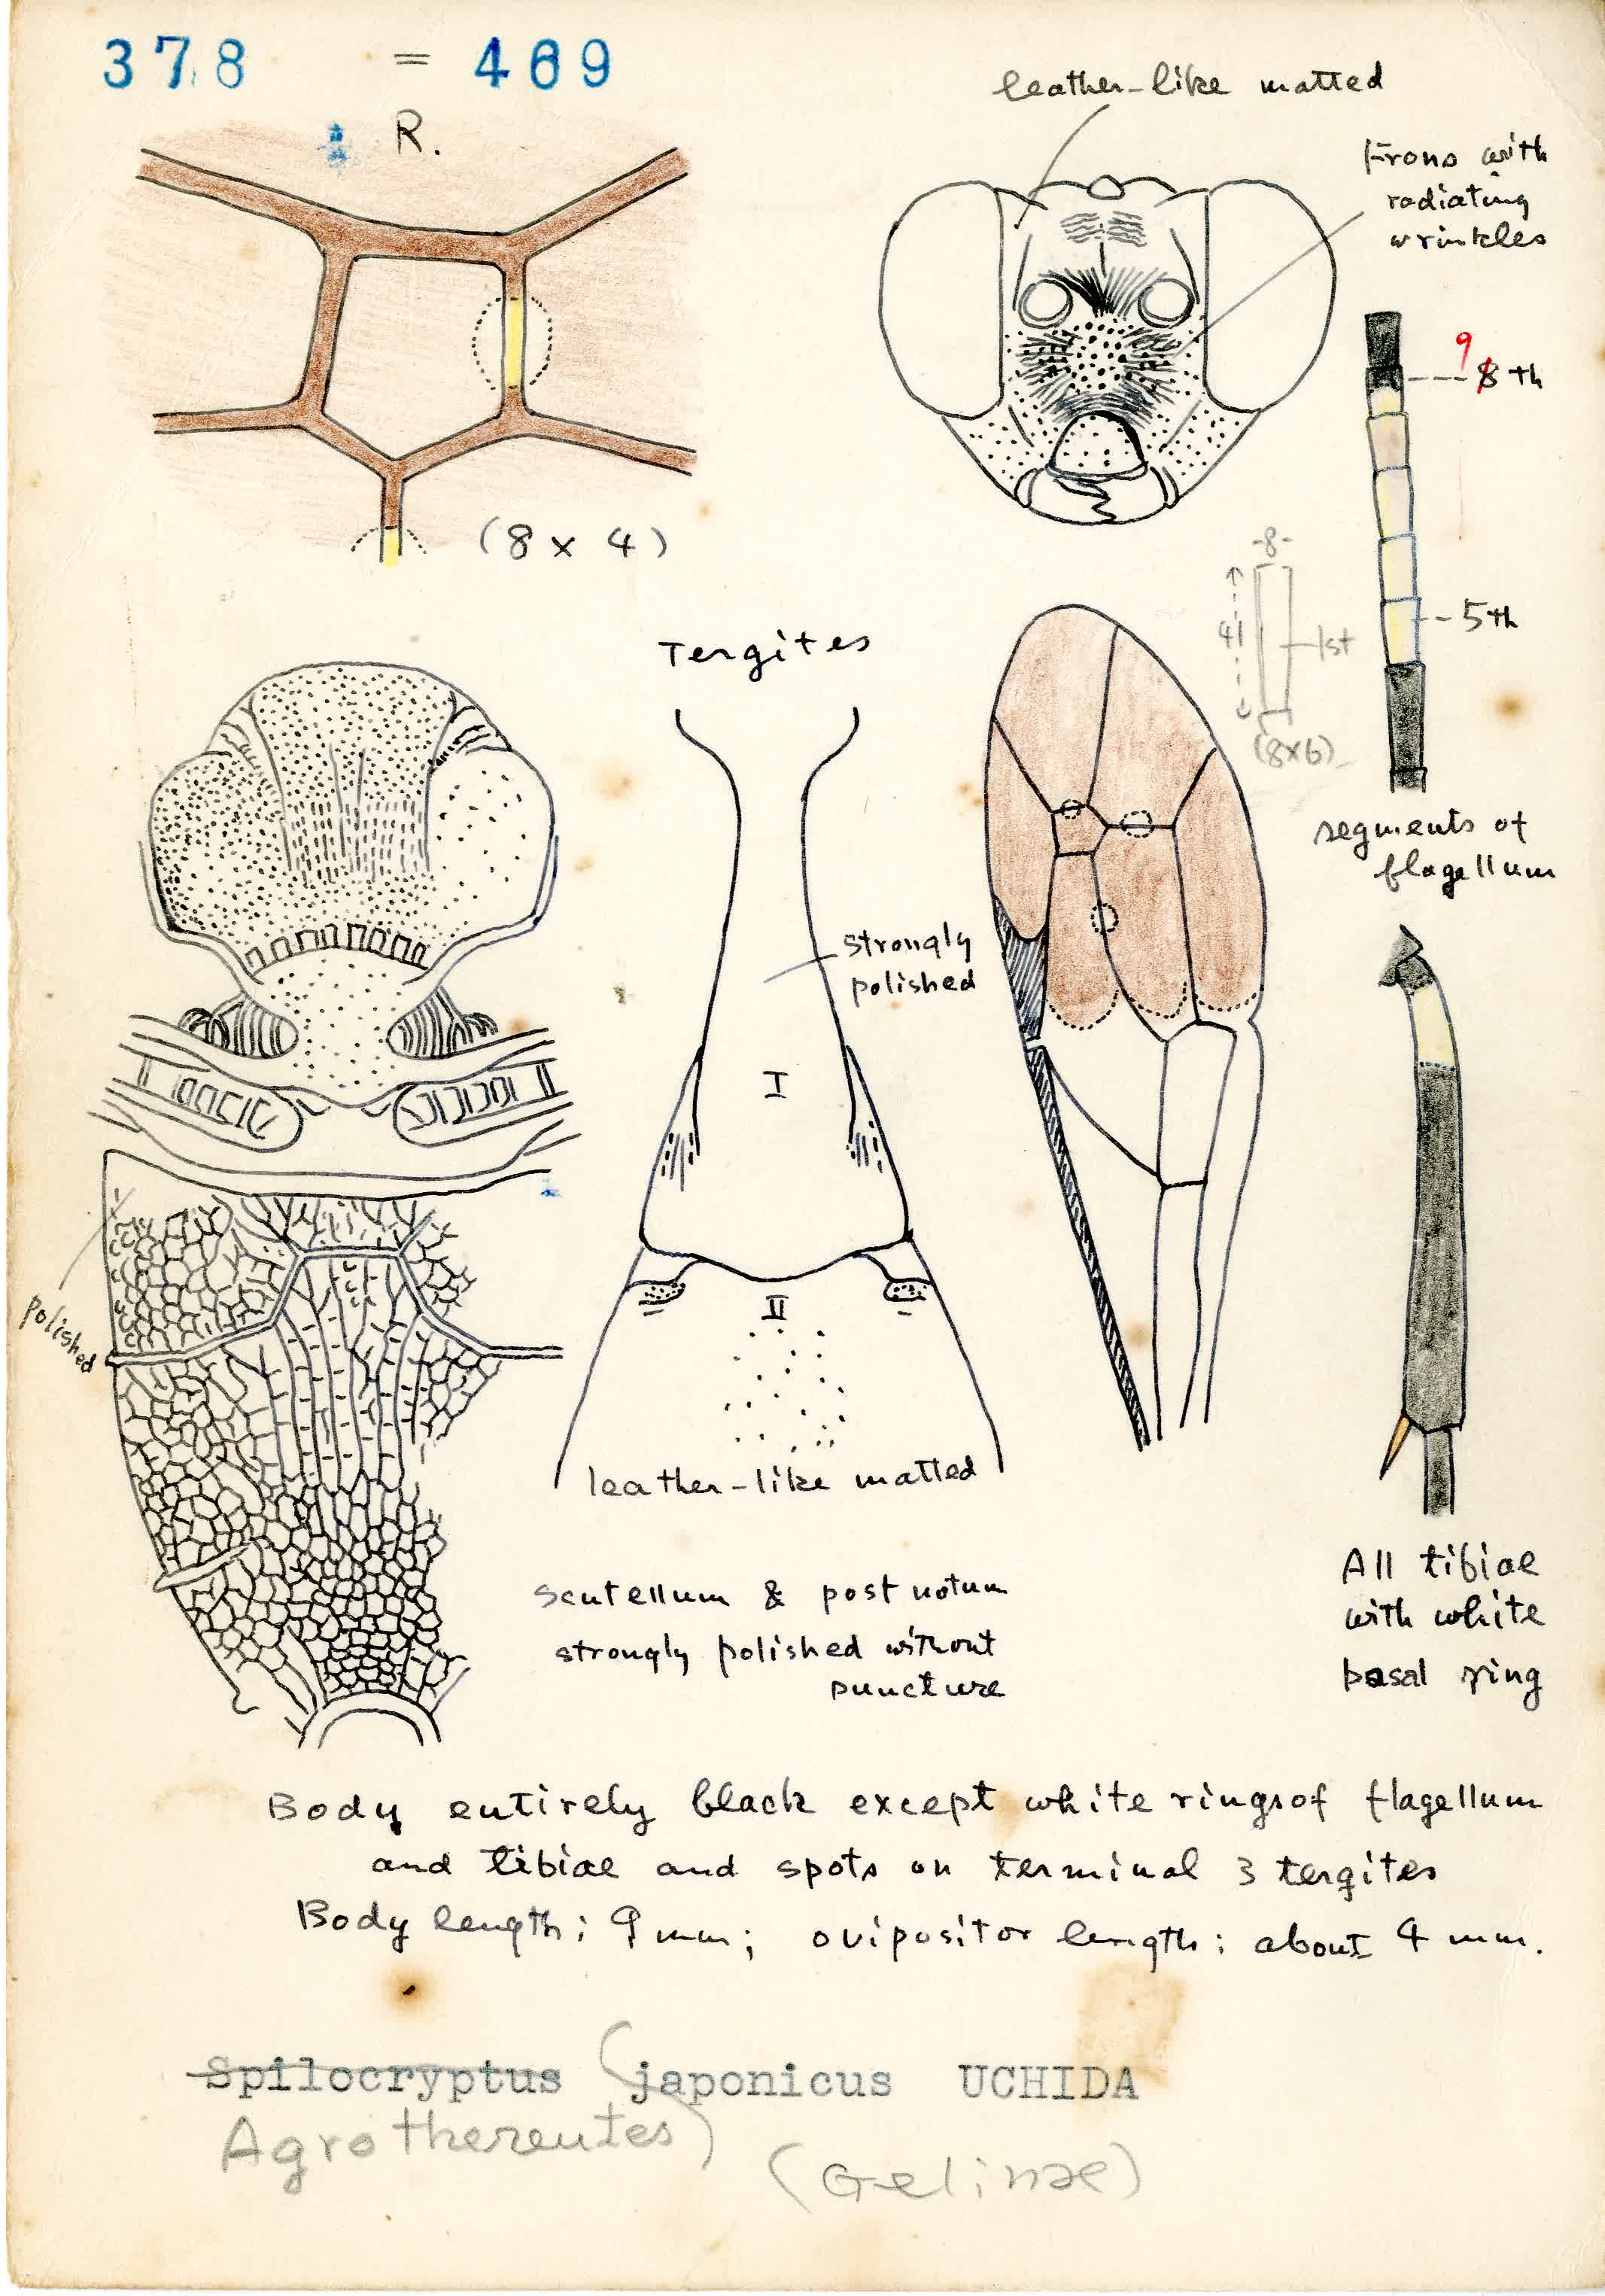 378 = 469
R.
(8 x 4)
leather-like matted
Frons with
radiating
wrinkles
9
8 th
5 th
-8-
41
1st
(8x6)
segments of
flagellum
Tergites
strongly
polished
I
II
leather-like matted
polished
scutellum & post notum
strongly polished without
puncture
All tibiae
with white
basal ring
Body entirely black except white rings of flagellum
and tibiae and spots on terminal 3 tergites
Body length: 9 mm; ovipositor length: about 4 mm.
Spilocryptus japonicus UCHIDA
Agrothereutes
(Gelinae)